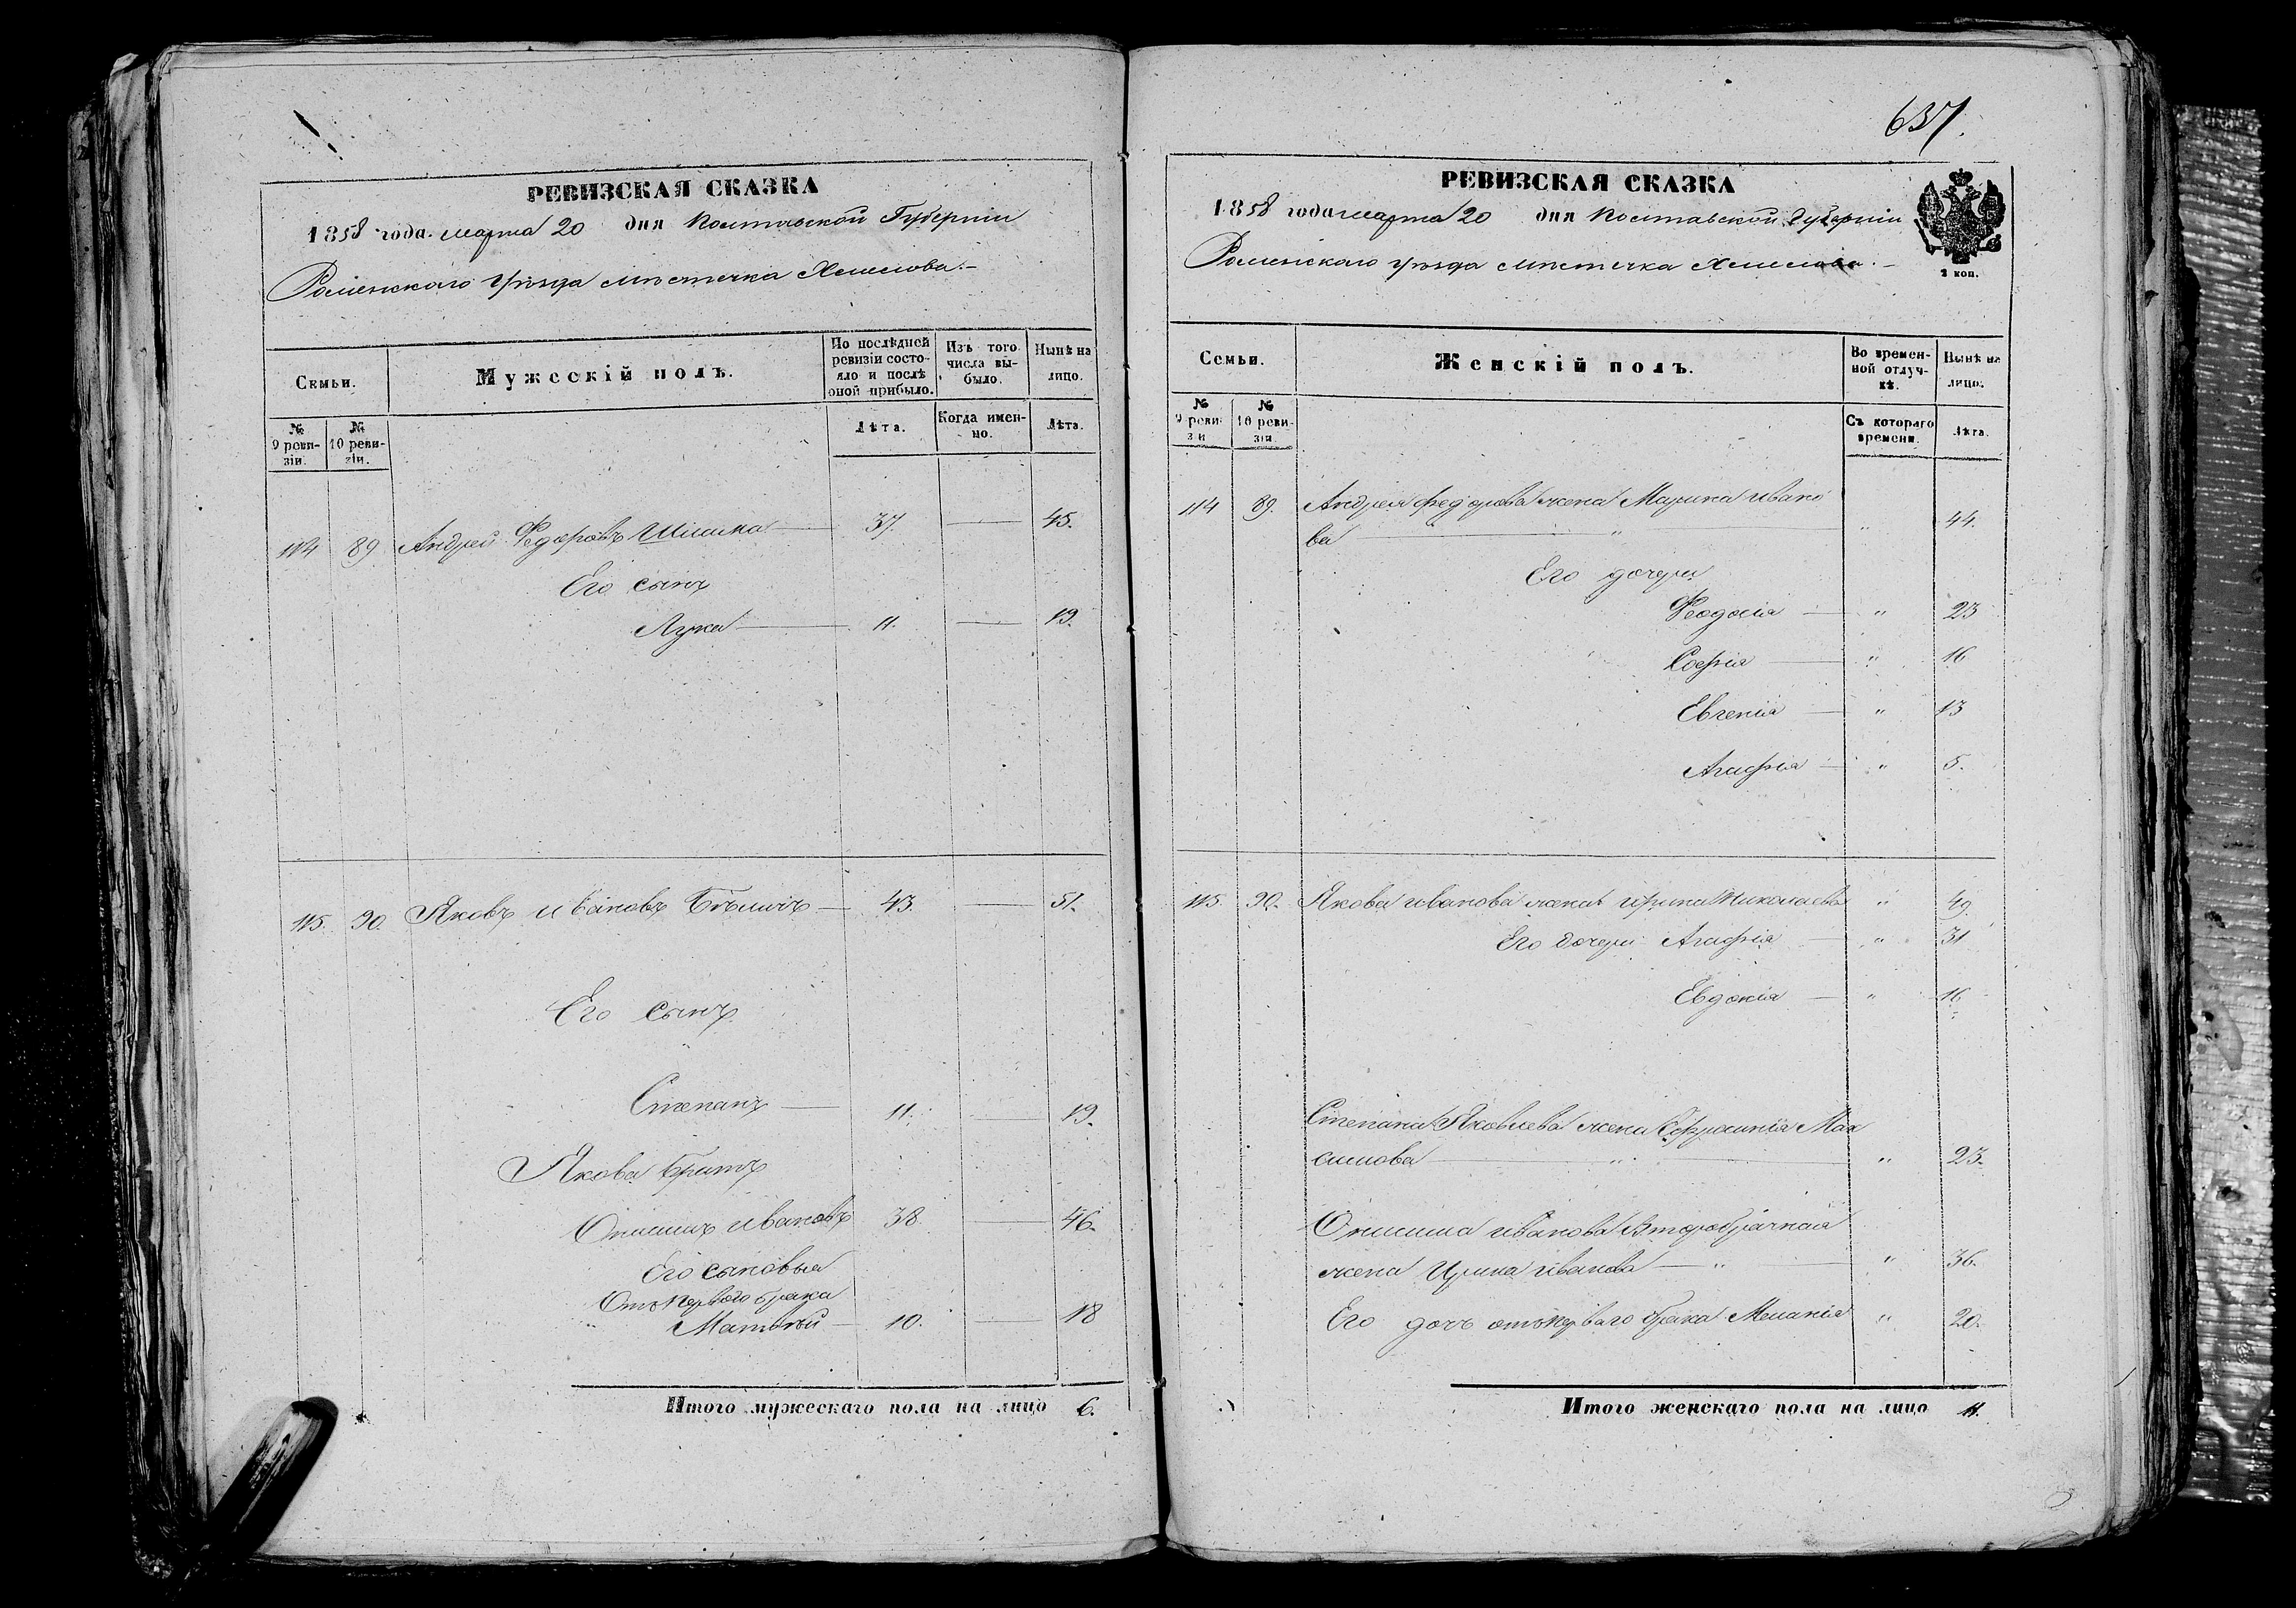 РЕВИЗСКАЯ СКАЗКА
1858 года марта 20 дня Полтавской Губерніи
Роменского уѣзда мѣстечка Хмелова.
Семьи.
Мужескій полъ.
По послѣдней ревизіи состояло и послѣ оной прибыло.
Изъ того числа выбыло.
Нынѣ на лицо.
№ 9 ревизіи.
№ 10 ревизіи.
Лѣта.
Когда именно.
Лѣта.
114 89 Андрей Федоровъ Шишка 37. 45.
Его сынъ
Лука 11. 19.
115. 90. Яковъ Ивановъ 43. 51.
Его сынъ
Степанъ 11. 19.
Якова братъ
Онисимъ Ивановъ 38. 46.
Его сыновья
Отъ первого брака
Матвѣй 10. 18
Итого мужескаго пола на лицо 6.
637.
РЕВИЗСКАЯ СКАЗКА
1858 года марта 20 дня Полтавской Губерніи
Роменскаго уѣзда мѣстечка Хмелова.
2 коп.
Семьи.
Женскій полъ.
Во временной отлучкѣ.
Нынѣ на лицо.
№ 9 ревизіи
№ 10 ревизіи.
Съ котораго времени.
Лѣта.
114 89. Андрея Федорова жена Марина Ивано
ва " " 44.
Его дочери
Феодосія " 23
Софія " 16
Евгенія " 13
Агафія " 5.
115. 90. Якова Иванова жена Ирина Николаева " 49.
Его дочери Агафія " 31
Евдокія " 16
Степана Яковлева жена Ефросинія Мак
симова " " 23.
Онисима Иванова Второбрачная
жена Ирина Иванова " " 36.
Его дочь отъ перваго брака Меланія " 20.
Итого женскаго пола на лицо 11.